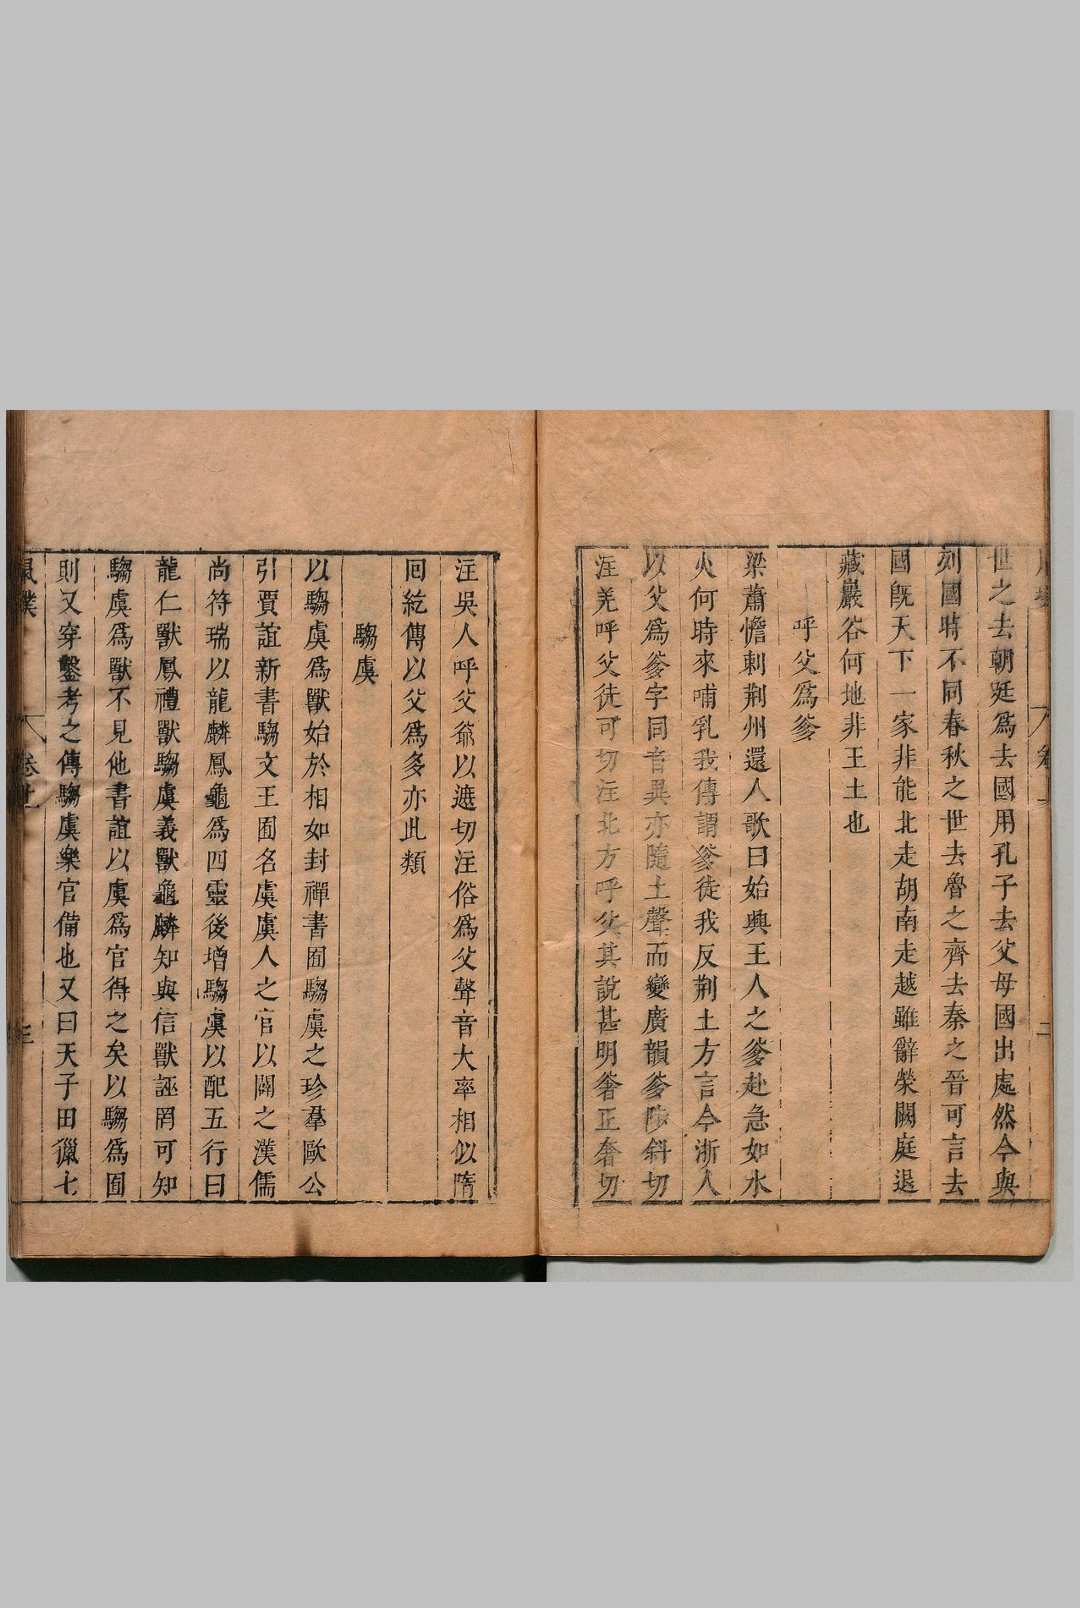 世之去朝廷爲去國用孔子去父母國出處然今與
列國時不同春秋之世去魯之齊去秦之晉可言去
國旣天下一家非能北走胡南走越雖辭榮闕庭退
藏巖谷何地非王土也
呼父爲爹
梁蕭憺刺荆州還人歌曰始興王人之爹赴急如水
火何時來哺乳我傳謂爹徒我反荆土方言今浙人
以父爲爹字同音異亦隨土聲而變廣韻爹陟斜切
注羌呼父徒可切注北方呼父其說甚明奢正奢切
注吳人呼父爺以遮切注俗爲父聲音大率相似隋
回紇傳以父爲多亦此類
騶虞
以騶虞爲獸始於相如封禪書囿騶虞之珍羣歐公
引賈誼新書騶文王囿名虞虞人之官以闢之漢儒
尚符瑞以龍麟鳳龜爲四靈後增騶虞以配五行曰
龍仁獸鳳禮獸騶虞義獸龜麟知與信獸誣罔可知
騶虞爲獸不見他書誼以虞爲官得之矣以騶爲囿
則又穿鑿考之傳騶虞樂官備也又曰天子田獵七
卷廿 三